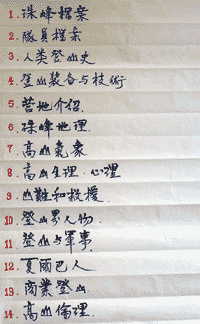 1. 珠峰檔案
2. 隊員檔案
3. 人类登山史
4. 登山裝备与技術
5. 营地介绍.
6. 珠峰地理.
7. 高山氣象
8. 高山生理.心理
9. 山難和救援.
10. 登山界人物.
11. 登山与軍事.
12. 夏爾巴人
13. 商業登山.
14. 高山倫理.